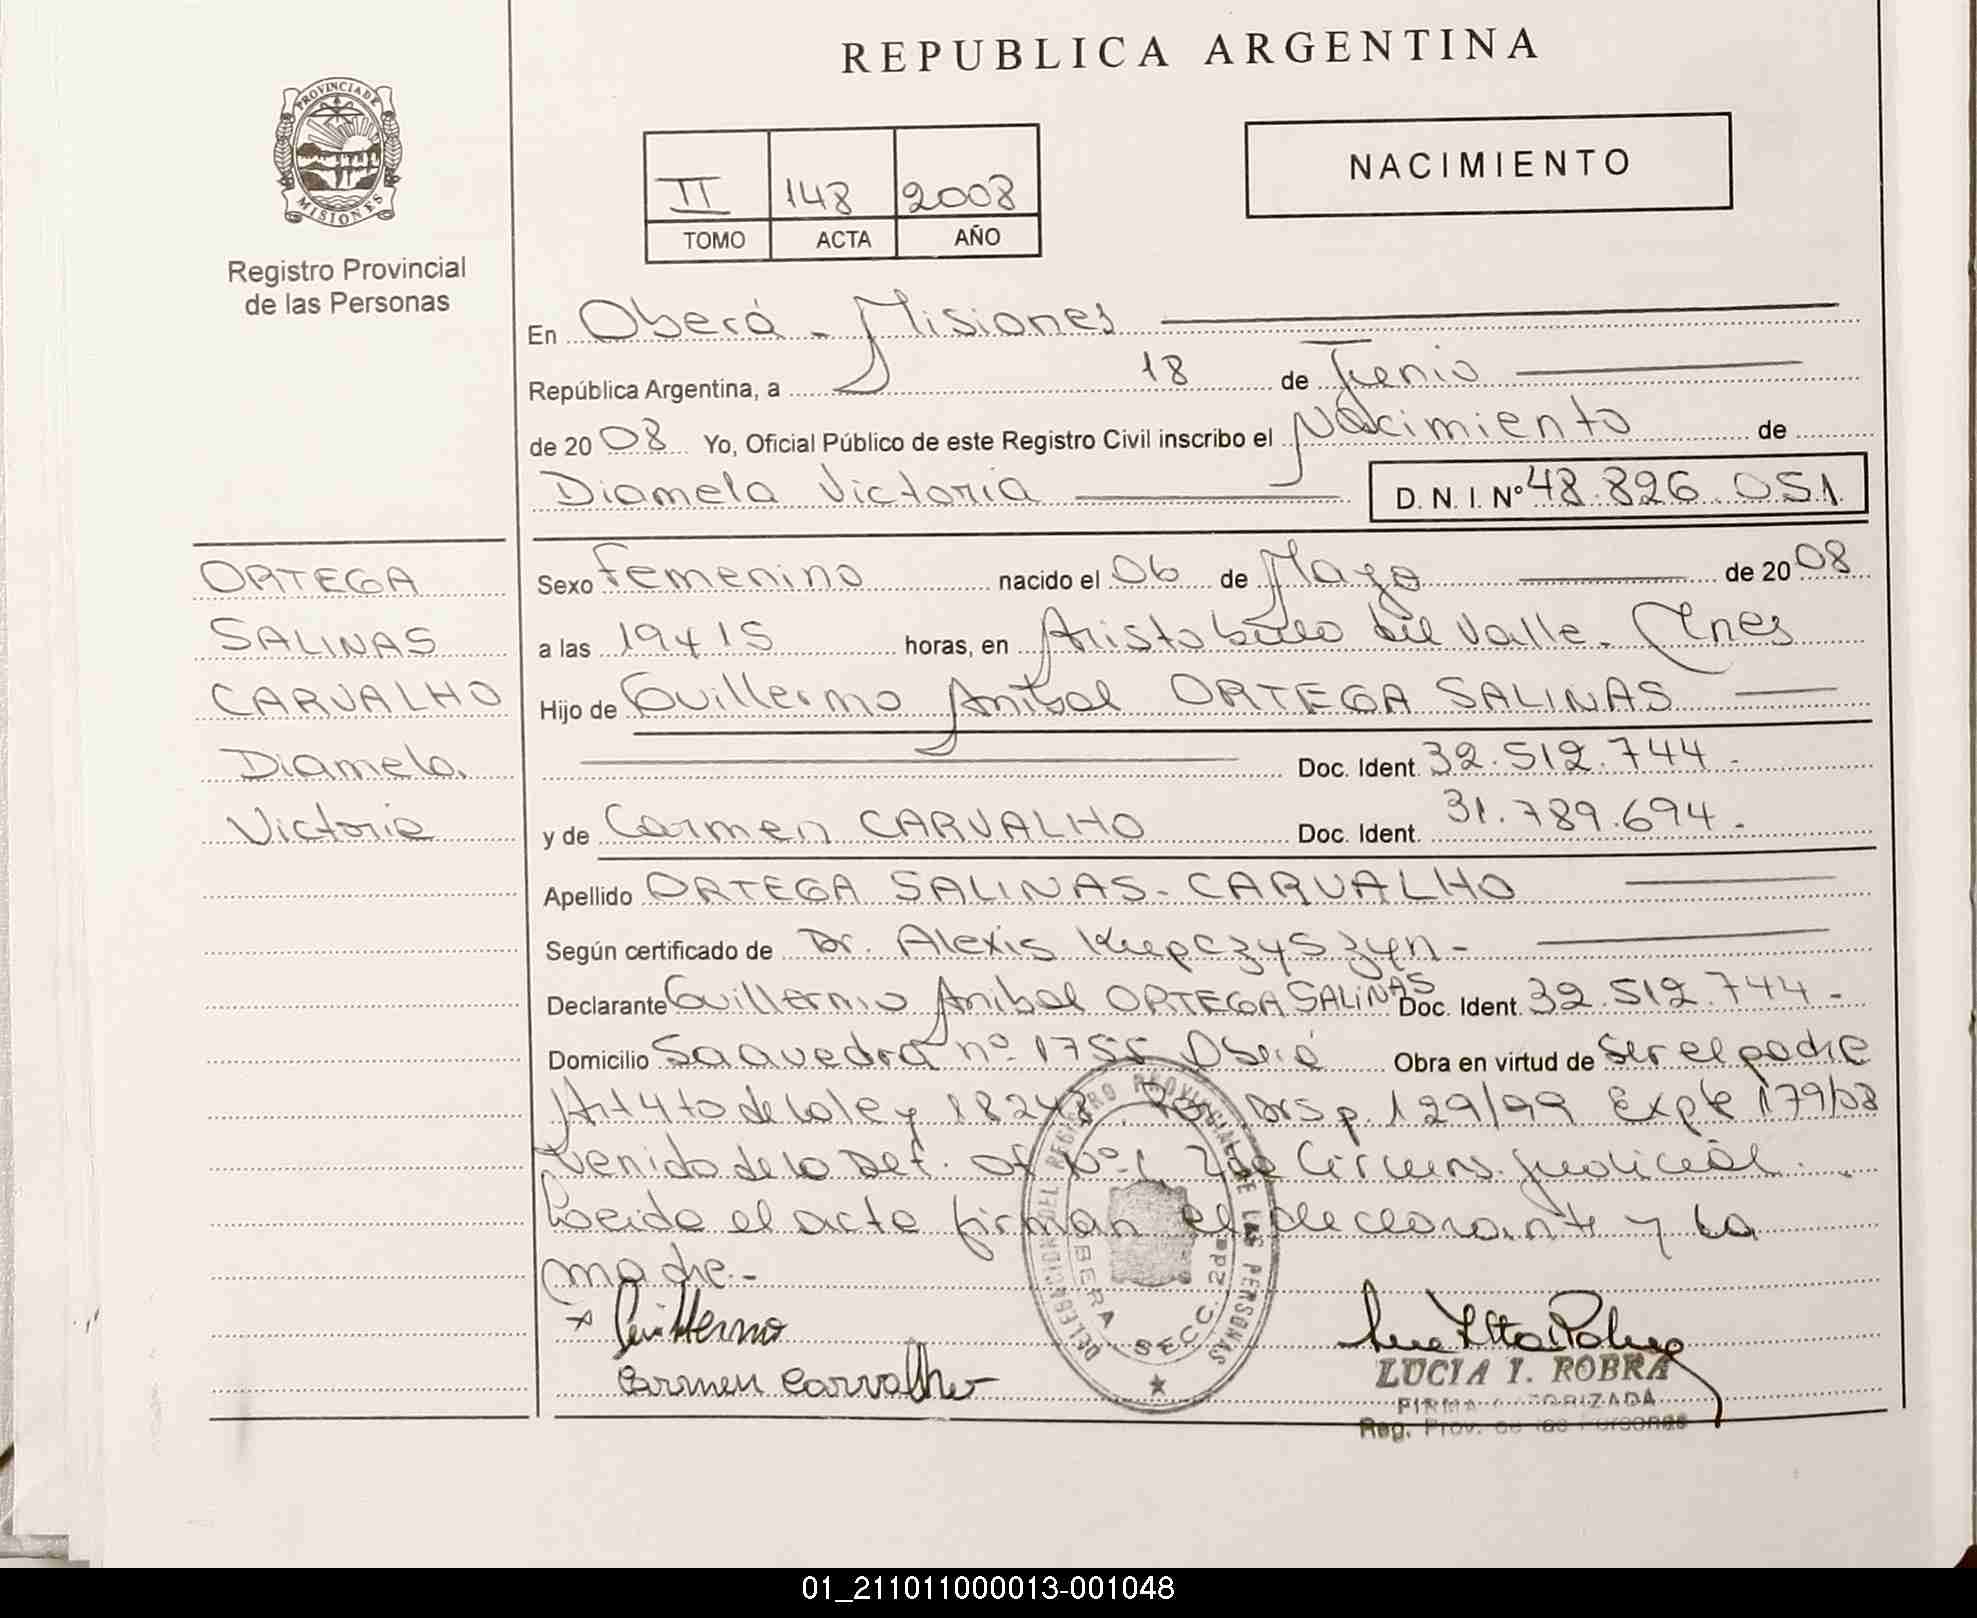 REPUBLICA ARGENTINA
PROVINCIA DE
MISIONES
Registro Provincial
de las Personas
II 148 2008
TOMO ACTA AÑO
NACIMIENTO
En Oberá - Misiones
República Argentina, a 18 de Junio
de 2008 Yo, Oficial Público de este Registro Civil inscribo el Nacimiento de
Diamela Victoria D. N. I. Nº 48.826.051
ORTEGA
SALINAS
CARVALHO
Diamela
Victoria
Sexo Femenino nacido el 06 de Mayo de 2008
a las 19 y 15 horas, en Aristobulo del Valle. Mnes
Hijo de Guillermo Anibal ORTEGA SALINAS
Doc. Ident. 32.512.744.-
y de Carmen CARVALHO Doc. Ident. 31.789.694.-
Apellido ORTEGA SALINAS - CARVALHO
Según certificado de Dr. Alexis Kupczyszyn -
Declarante Guillermo Anibal ORTEGA SALINAS Doc. Ident. 32.512.744 -
Domicilio Saavedra nº 1755 Oberá Obra en virtud de Ser el padre
Art 4to de la ley 18248. Por Disp. 129/99 Expte 179/08
venido de la Def. Of Nº 1 2da Circuns. Judicial.
Leida el acta firman el declarante y la
madre.-
x Guillermo
Carmen Carvalho
DELEGACION DEL REGISTRO PROVINCIAL DE LAS PERSONAS
OBERA SECC. 2da
LUCIA I. ROBRA
FIRMA AUTORIZADA
Reg. Prov. de las Personas
01_211011000013-001048